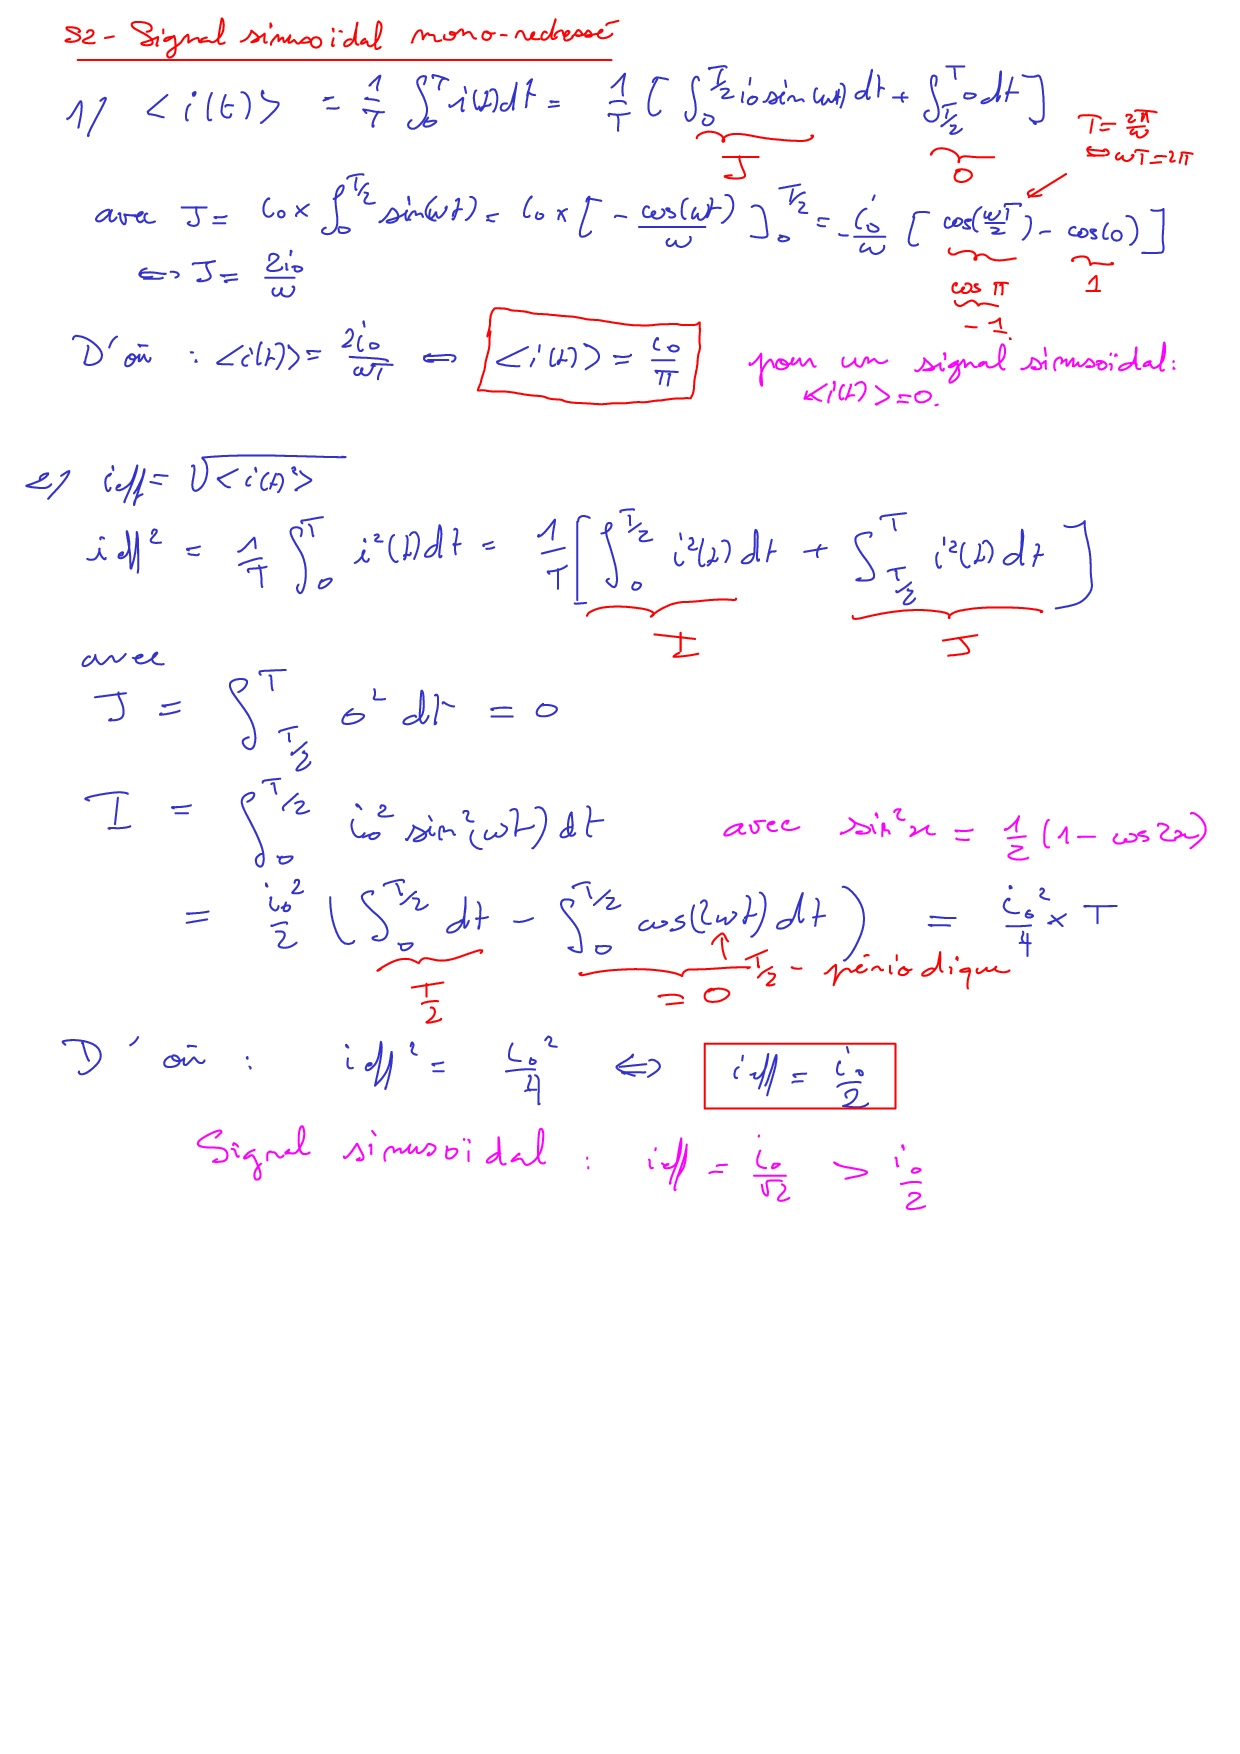 S2 - Signal sinusoïdal mono-redressé
1/ <i(t)> = 1/T ∫₀ᵀ i(t)dt = 1/T [ ∫₀^{T/2} i₀ sin(ωt) dt + ∫_{T/2}^T 0 dt ]
J
0
T = 2π/ω
⇔ ωT = 2π
avec J = i₀ × ∫₀^{T/2} sin(ωt) = i₀ × [ - cos(ωt)/ω ]₀^{T/2} = - i₀/ω [ cos(ωT/2) - cos(0) ]
cos π
1
-1
⇔ J = 2i₀/ω
D'où : <i(t)> = 2i₀/ωT ⇔ <i(t)> = i₀/π
pour un signal sinusoïdal :
<i(t)> = 0.
2/ ieff = √<i(t)²>
ieff² = 1/T ∫₀ᵀ i²(t)dt = 1/T [ ∫₀^{T/2} i²(t) dt + ∫_{T/2}^T i²(t) dt ]
I
J
avec
J = ∫_{T/2}^T 0² dt = 0
I = ∫₀^{T/2} i₀² sin²(ωt) dt
avec sin²x = 1/2 (1 - cos 2x)
= i₀²/2 ( ∫₀^{T/2} dt - ∫₀^{T/2} cos(2ωt) dt ) = i₀²/4 × T
T/2
= 0
T/2 - périodique
D'où : ieff² = i₀²/4 ⇔ ieff = i₀/2
Signal sinusoïdal : ieff = i₀/√2 > i₀/2